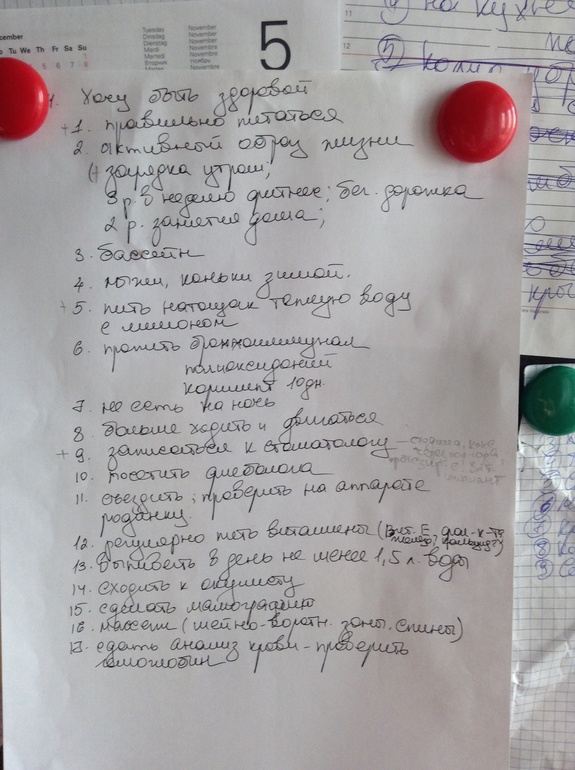 cember
Tu We Th Fr Sa Su
Tuesday
Dinsdag
Dienstag
Mardi
Martedi
Martes
November
November
November
Novembre
Novembre
Noviembre
Ноябрь
November
5
11
12
на кухне
1. Хочу быть здоровой
+1. правильно питаться
2. активный образ жизни
(+ зарядка утром;
3 р. в неделю фитнес; бег. дорожка
2 р. занятия дома;
3. бассейн
4. лыжи, коньки зимой.
+5. пить натощак теплую воду
с лимоном
6. пропить бронхоиммунал
полиоксидоний
10дн.
7. не есть на ночь
8. больше ходить и двигаться
+9. записаться к стоматологу
10. посетить
11. съездить, проверить на аппарате
родинку.
12. регулярно пить витамины (Вит. Е, фол-к-та
железо, кальций?)
13. Выпивать в день не менее 1,5 л. воды
14. сходить к окулисту
15. сделать мамографию
16. массаж (шейно-воротн. зоны, спины)
17. сдать анализ крови - проверить
гемоглобин